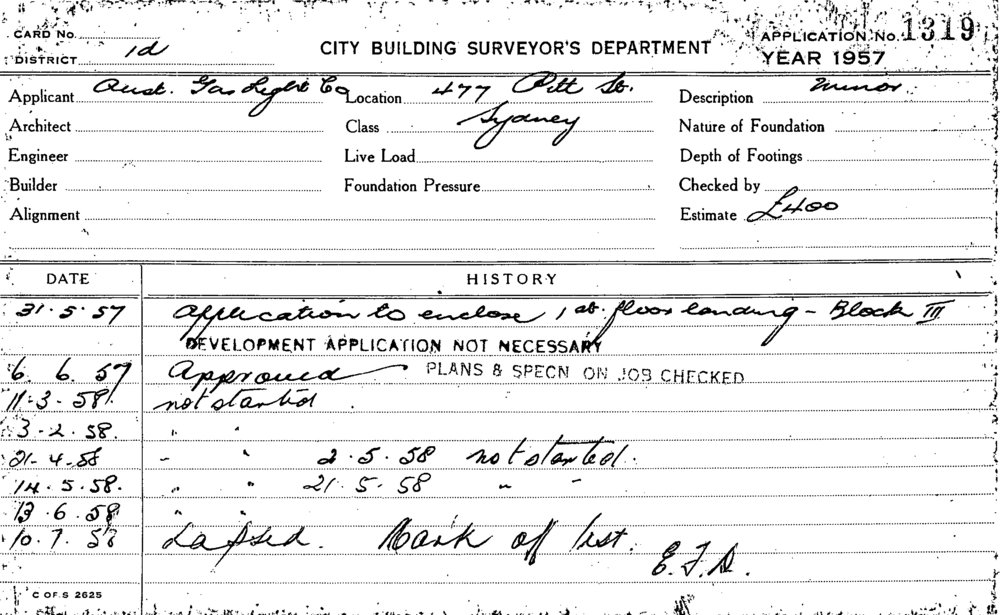 CARD No.
DISTRICT 1d
CITY BUILDING SURVEYOR'S DEPARTMENT
APPLICATION No. 1319
YEAR 1957
Applicant Aust. Gas Light Co Location 477 Pitt St. Description Minor
Architect Class Sydney Nature of Foundation
Engineer Live Load Depth of Footings
Builder Foundation Pressure Checked by
Alignment Estimate £400
DATE HISTORY
31.5.57 Application to enclose 1st. floor landing - Block III
DEVELOPMENT APPLICATION NOT NECESSARY
6.6.57 Approved PLANS & SPECN ON JOB CHECKED
11-3-58 not started
3-2-58. " "
21-4-58 " " 2.5.58 not started.
14.5.58. " " 21.5.58 " "
13.6.58 " "
10.7.58 Lapsed. Mark off list. E.F.D.
C OF S 2625